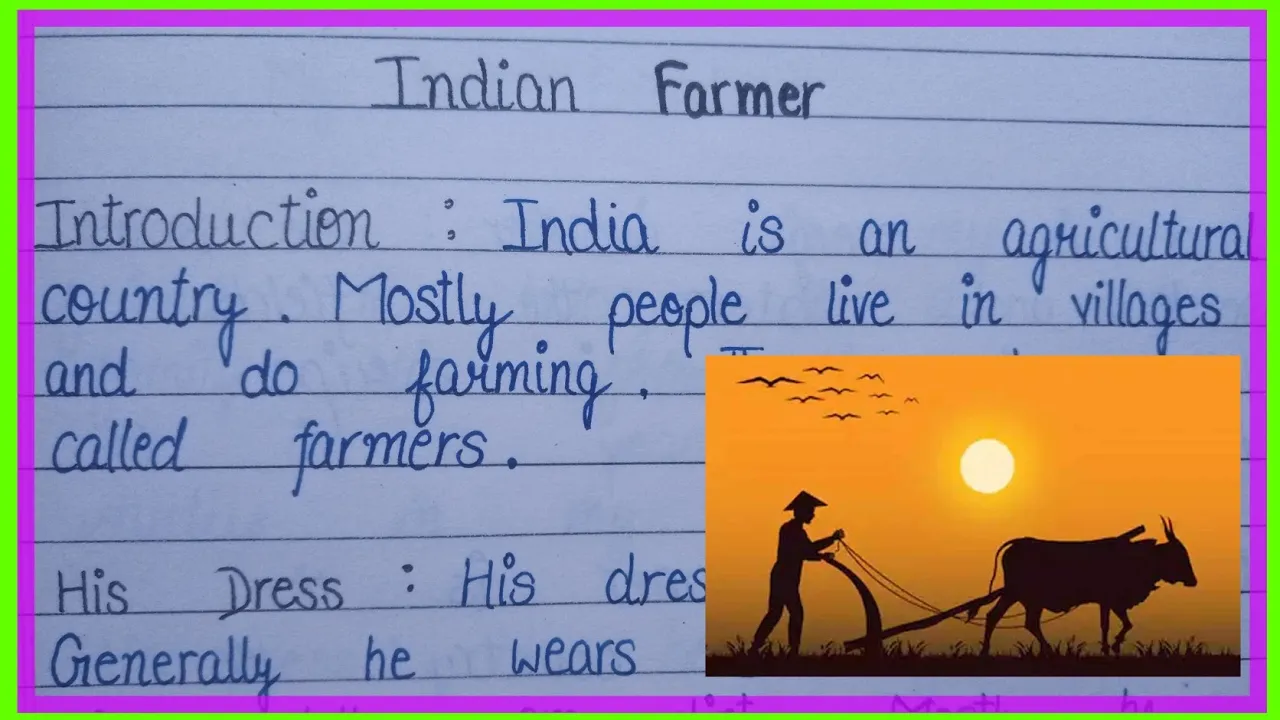 Indian Farmer
Introduction : India is an agricultural
country. Mostly people live in villages
and do farming.
called farmers.
His Dress : His
Generally he wears